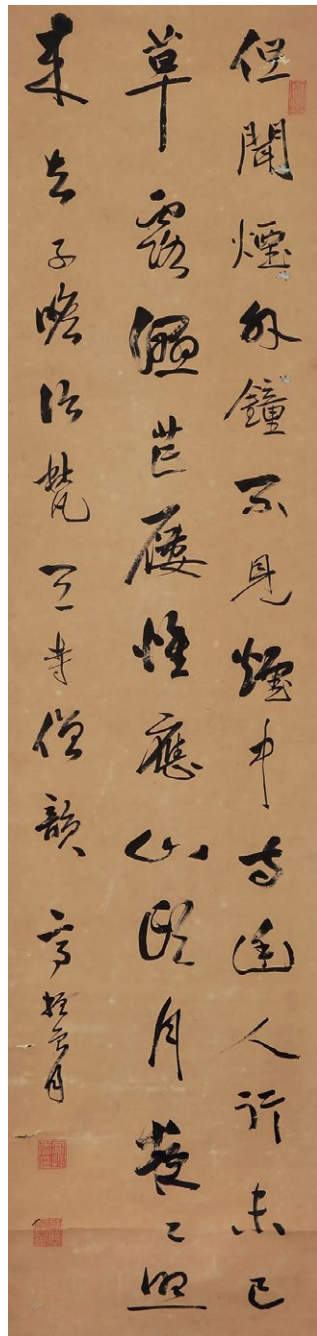 但聞煙外鐘不見煙中寺幽人行未已
草露濕芒屨惟應山頭月夜々照
来去子瞻次梵天寺僧韻